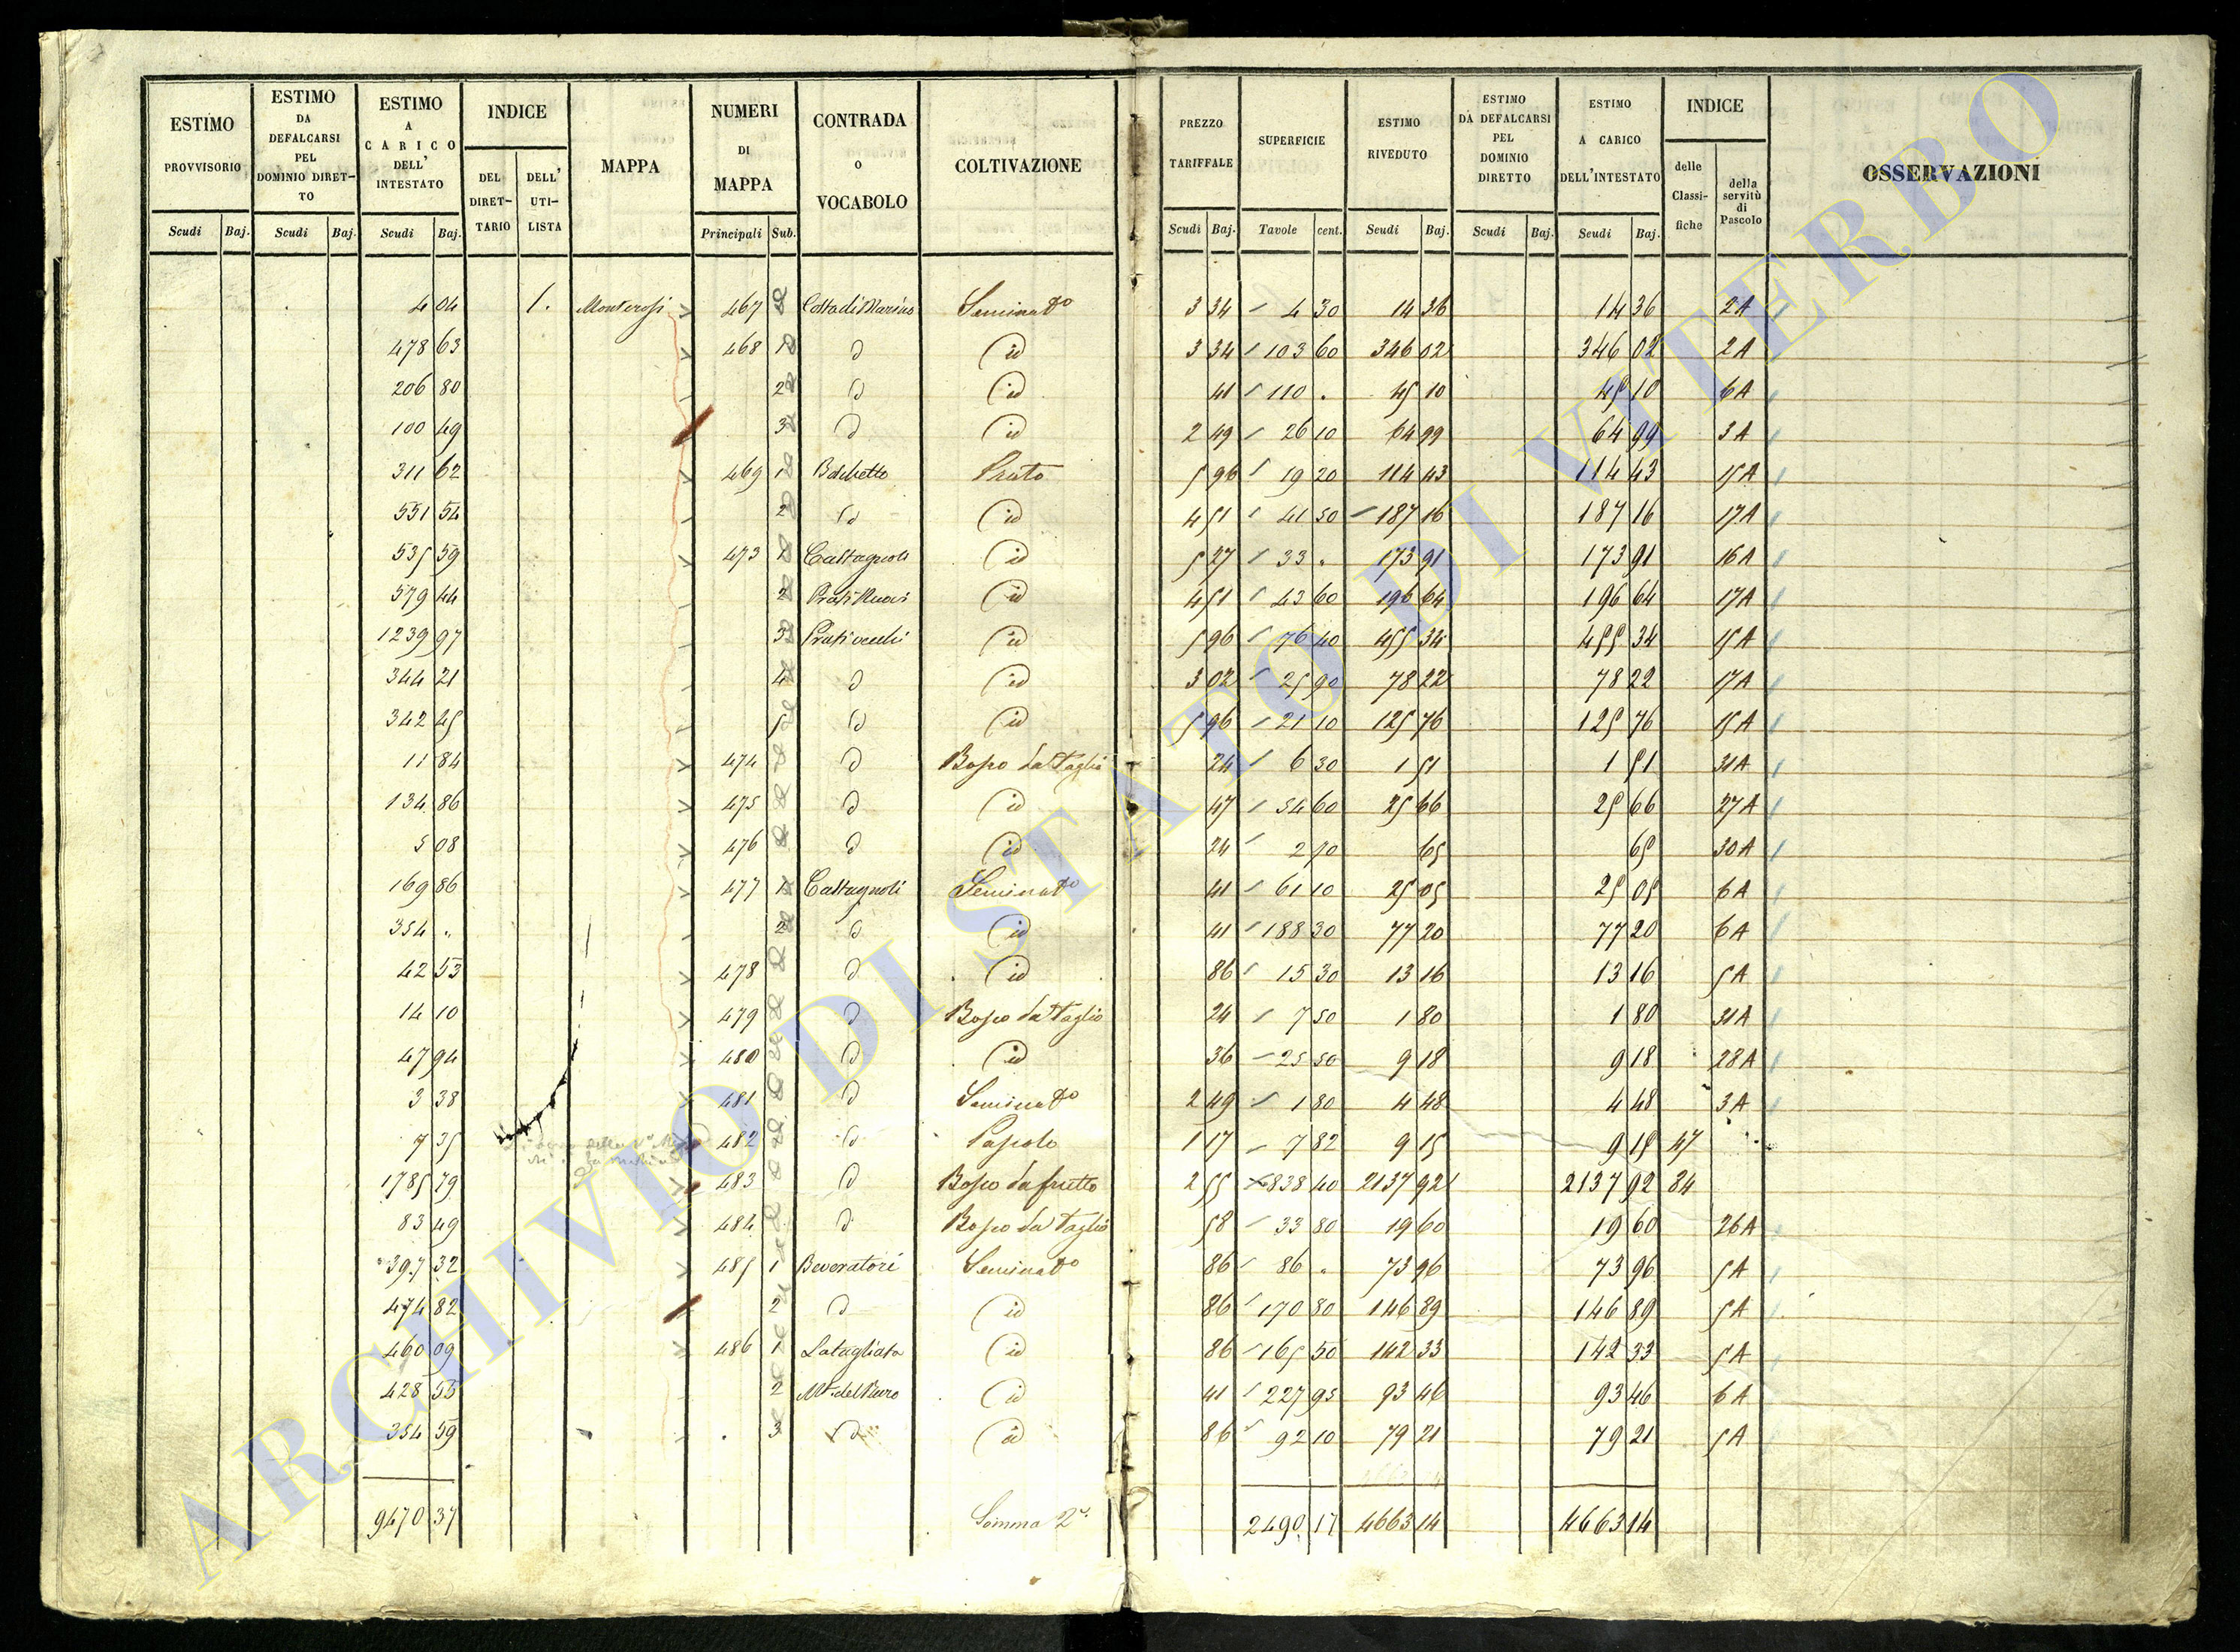 ESTIMO PROVVISORIO | ESTIMO DA DEFALCARSI PEL DOMINIO DIRETTO | ESTIMO A CARICO DELL' INTESTATO | INDICE | MAPPA | NUMERI DI MAPPA | CONTRADA O VOCABOLO | COLTIVAZIONE | PREZZO TARIFFALE | SUPERFICIE | ESTIMO RIVEDUTO | ESTIMO DA DEFALCARSI PEL DOMINIO DIRETTO | ESTIMO A CARICO DELL'INTESTATO | INDICE | OSSERVAZIONI
DEL DIRETTARIO | DELL' UTILISTA | delle Classifiche | della servitù di Pascolo
Scudi | Baj. | Scudi | Baj. | Scudi | Baj. | Principali | Sub. | Scudi | Baj. | Tavole | cent. | Scudi | Baj. | Scudi | Baj. | Scudi | Baj.
4 04 | 1. | Monterosi | 467 | Costa di Marino | Seminato | 3 34 | 4 30 | 14 36 | 14 36 | 2A
478 63 | 468 | 1 | d | id | 3 34 | 103 60 | 346 02 | 346 02 | 2A
206 80 | 2 | d | id | 41 | 110 . | 45 10 | 45 10 | 6A
100 49 | 3 | d | id | 2 49 | 26 10 | 64 99 | 64 99 | 3A
311 62 | 469 | 1 | Prato | 5 96 | 19 20 | 114 43 | 114 43 | 15A
551 54 | 2 | d | id | 4 51 | 41 50 | 187 16 | 187 16 | 17A
535 59 | 473 | 1 | Castagnoli | id | 5 27 | 33 . | 173 91 | 173 91 | 16A
579 44 | 2 | Prati Nuovi | id | 4 51 | 43 60 | 196 64 | 196 64 | 17A
1239 97 | 3 | Prati vecchi | id | 5 96 | 76 40 | 455 34 | 455 34 | 15A
344 21 | 4 | d | id | 3 02 | 25 90 | 78 22 | 78 22 | 17A
342 45 | 5 | d | id | 5 96 | 21 10 | 125 76 | 125 76 | 15A
11 84 | 474 | d | Bosco da Taglio | 24 | 6 30 | 1 51 | 1 51 | 31A
134 86 | 475 | d | id | 47 | 54 60 | 25 66 | 25 66 | 27A
5 08 | 476 | d | id | 24 | 2 70 | 65 | 65 | 30A
169 86 | 477 | 1 | Castagnoli | Seminato | 41 | 61 10 | 25 05 | 25 05 | 6A
354 . | 2 | d | id | 41 | 188 30 | 77 20 | 77 20 | 6A
42 53 | 478 | d | id | 86 | 15 30 | 13 16 | 13 16 | 5A
14 10 | 479 | d | Bosco da Taglio | 24 | 7 50 | 1 80 | 1 80 | 31A
47 94 | 480 | d | id | 36 | 25 50 | 9 18 | 9 18 | 28A
3 38 | 481 | d | Seminato | 2 49 | 1 80 | 4 48 | 4 48 | 3A
7 35 | 482 | d | Pascolo | 1 17 | 7 82 | 9 15 | 9 15 | 47
1785 79 | 483 | d | Bosco da frutto | 2 55 | 838 40 | 2137 92 | 2137 92 | 84
83 49 | 484 | d | Bosco da Taglio | 58 | 33 80 | 19 60 | 19 60 | 26A
397 32 | 485 | 1 | Beveratori | Seminato | 86 | 86 . | 73 96 | 73 96 | 5A
474 82 | 2 | d | id | 86 | 170 80 | 146 89 | 146 89 | 5A
460 09 | 486 | 1 | La tagliata | id | 86 | 165 50 | 142 33 | 142 33 | 5A
428 55 | 2 | id | 41 | 227 95 | 93 46 | 93 46 | 6A
354 59 | 3 | d | id | 86 | 92 10 | 79 21 | 79 21 | 5A
9470 37 | Somma 2a. | 2490 17 | 4663 14 | 4663 14
ARCHIVIO DI STATO DI VITERBO